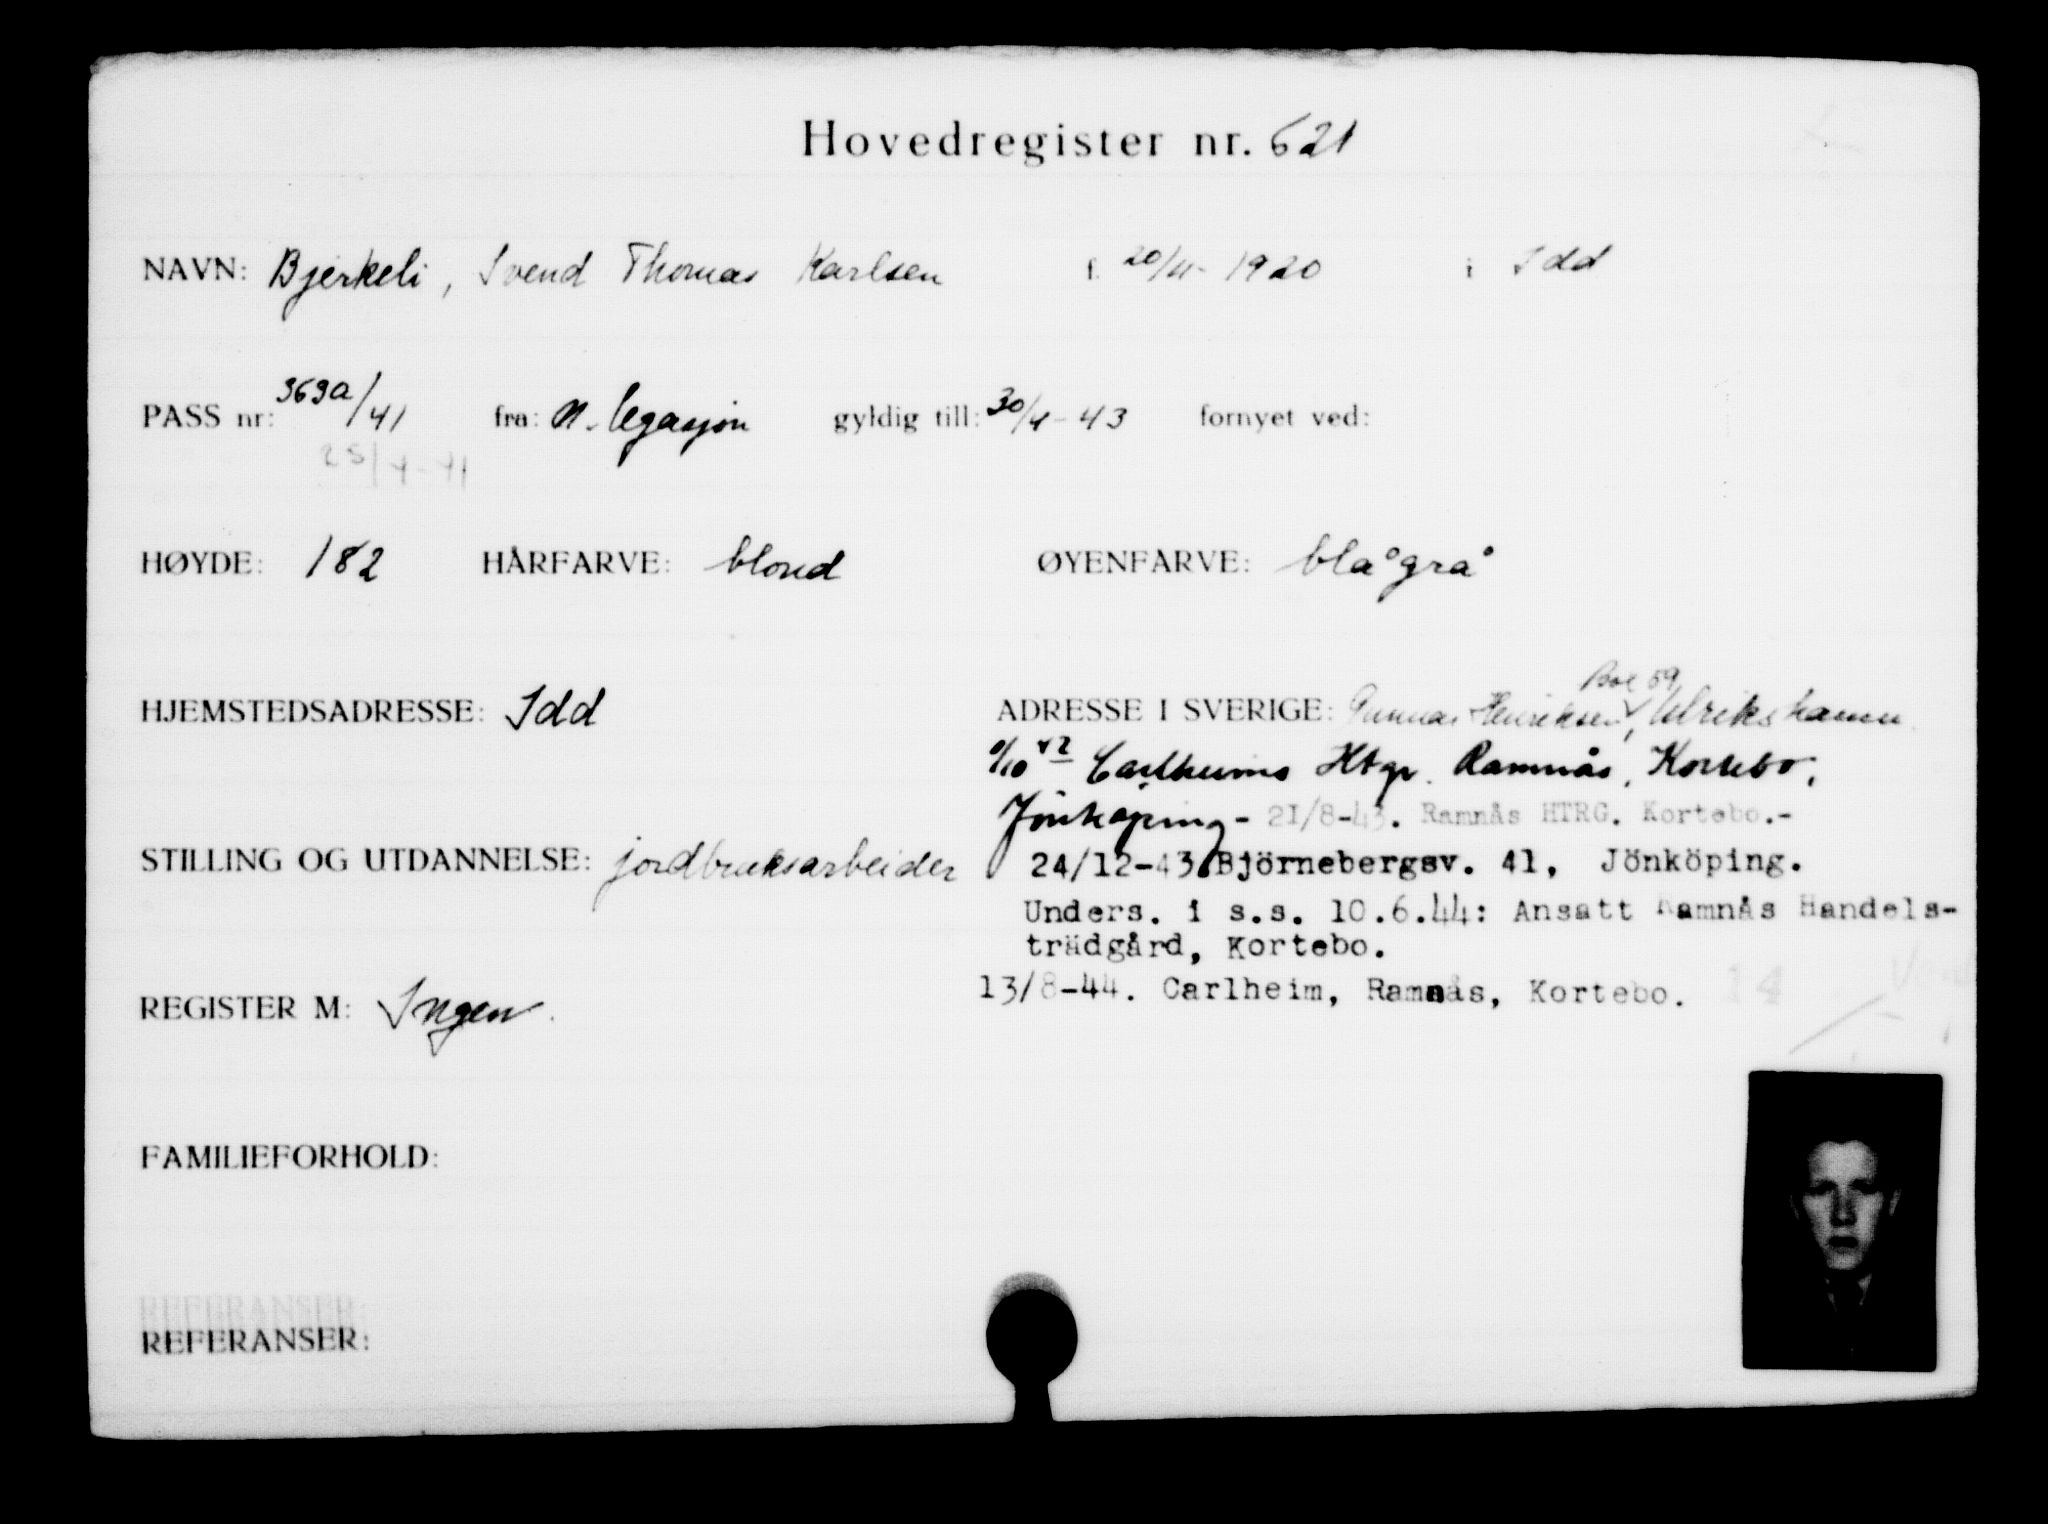 Hovedregister nr. 621
NAVN: Bjerkeli, Svend Thomas Karlsen f. 20/11-1920 i Idd
PASS nr: 369a/41 fra: N. legasjon gyldig till: 30/4-43 fornyet ved:
25/4-41
HØYDE: 182 HÅRFARVE: blond ØYENFARVE: blågrå
Box 59
HJEMSTEDSADRESSE: Idd ADRESSE I SVERIGE: Gunnar Henriksen, Ulrikshamn
/10 42 Carlheims Htgr. Ramnås, Kortebo,
Jönköping - 21/8-43. Ramnås HTRG. Kortebo.-
STILLING OG UTDANNELSE: jordbruksarbeider 24/12-43 Björnebergsv. 41, Jönköping.
Unders. i s.s. 10.6.44: Ansatt Ramnås Handels-
trädgård, Kortebo.
REGISTER M: Ingen. 13/8-44. Carlheim, Ramnås, Kortebo. 14
FAMILIEFORHOLD:
REFERANSER:
REFERANSER: